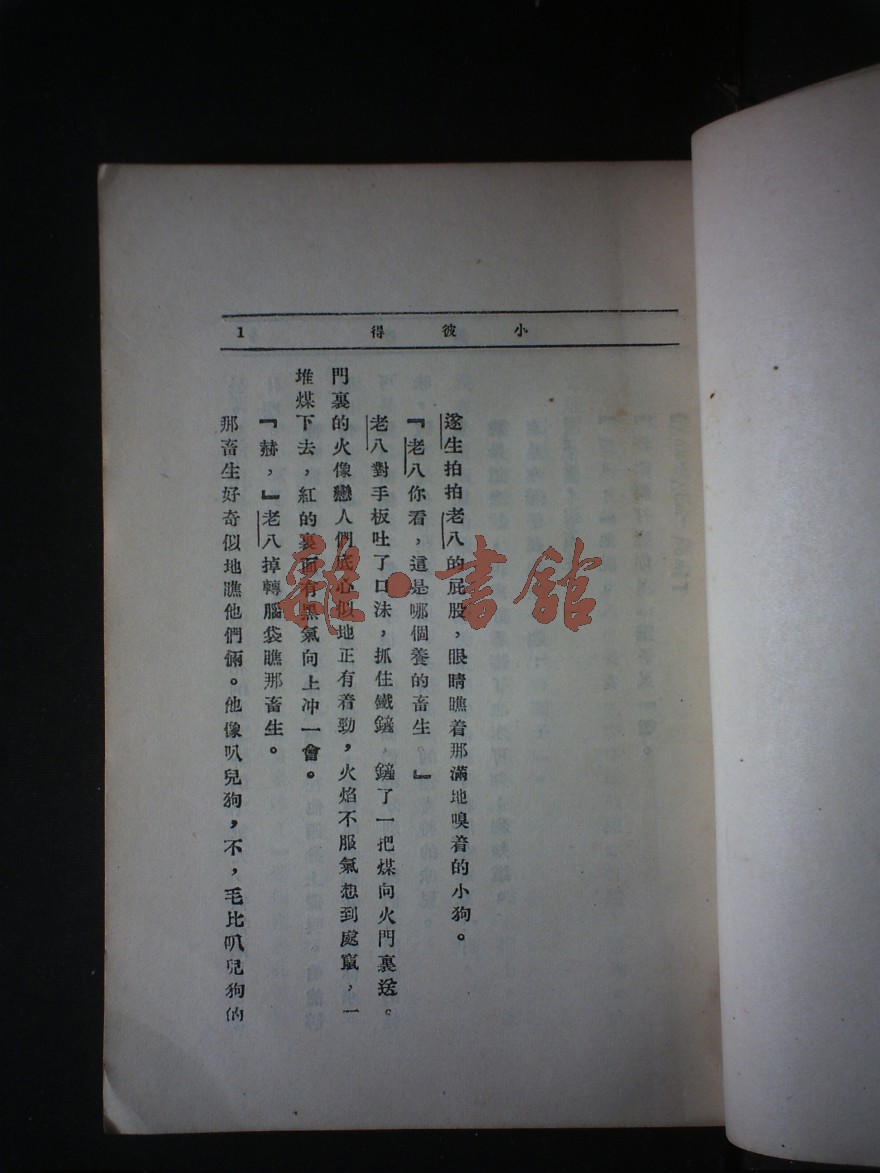 小彼得 1
遂生拍拍老八的屁股，眼睛瞧着那滿地嗅着的小狗。
『老八你看，這是哪個養的畜生。』
老八對手板吐了口沫，抓住鐵鏟，鏟了一把煤向火門裏送。
門裏的火像戀人們底心似地正有着勁，火焰不服氣想到處竄，一
堆煤下去，紅的裏面有黑氣向上冲一會。
『赫，』老八掉轉腦袋瞧那畜生。
那畜生好奇似地瞧他們倆。他像叭兒狗，不，毛比叭兒狗的
雜·書館